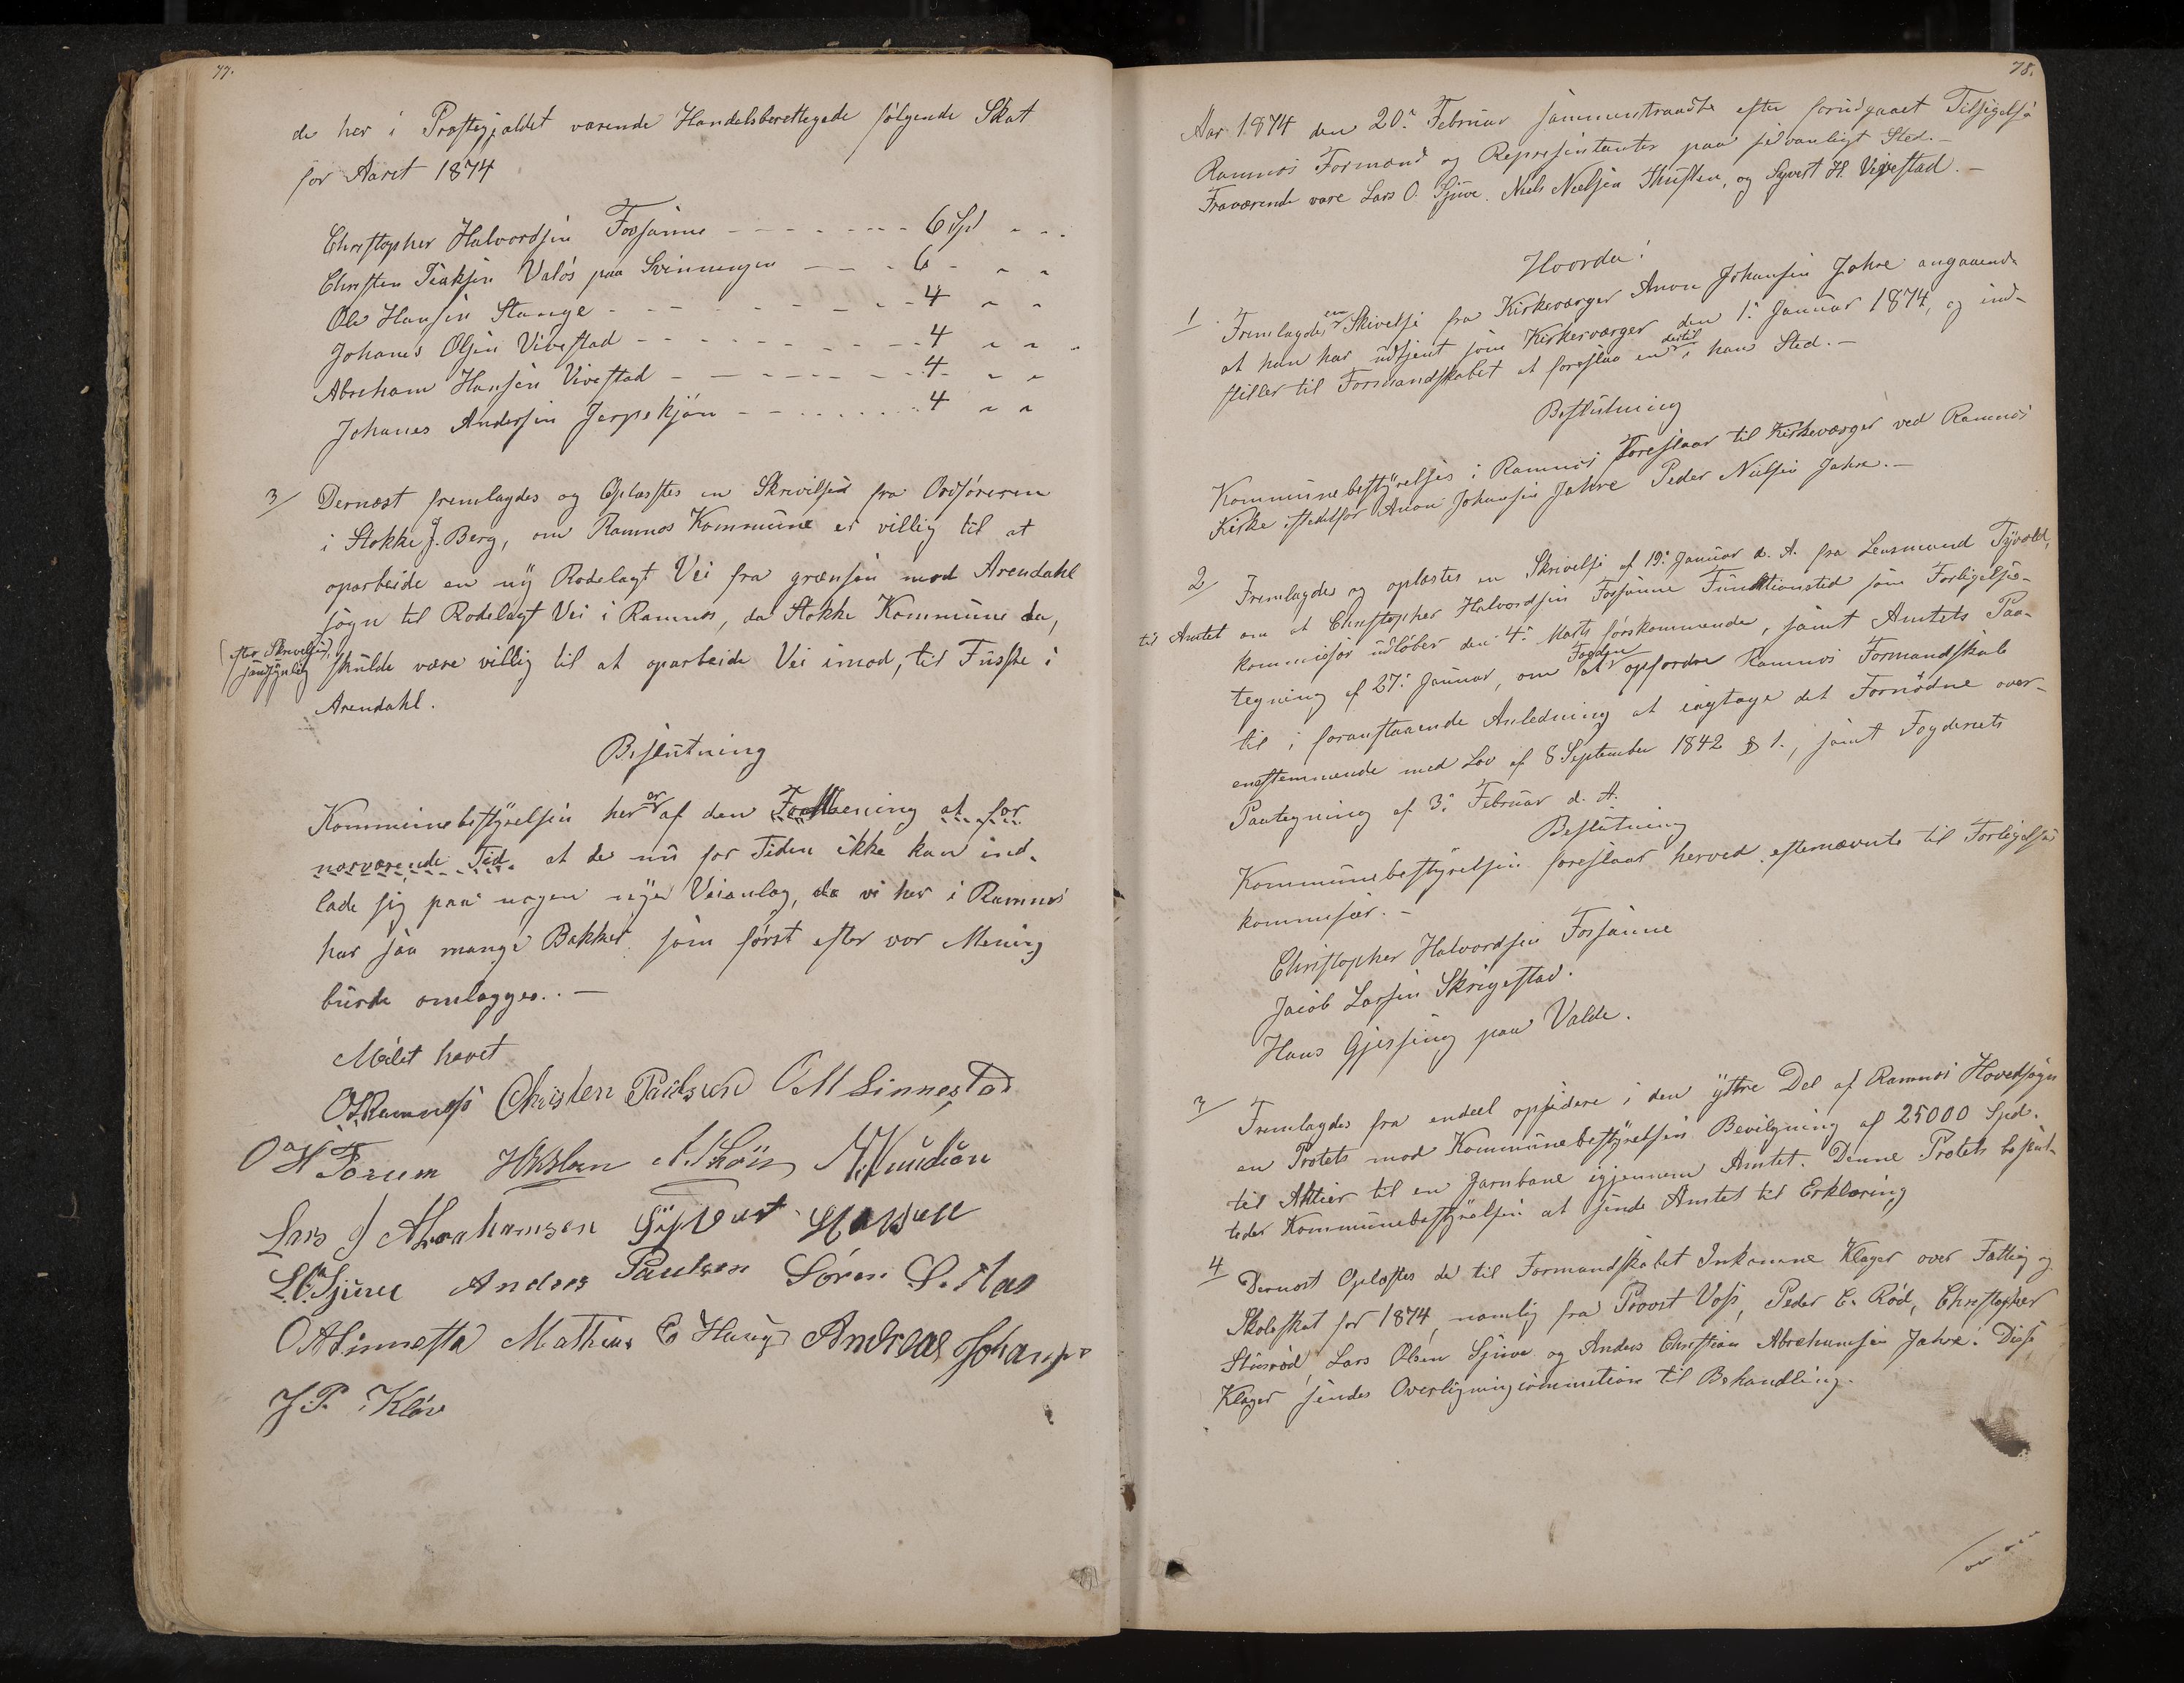 77.
de her i Præstegjældet værende Handelsberettegede følgende Skat
for Aaret 1874
Christopher Halvordsen Fossanne - - - - - - - 6 Spd - - -
Christen Isaksen Valøs paa Svinningen - - - 6 - - -
Ole Hansen Stange - - - - - - - - 4 - -
Johanes Olsen Vivestad - - - - - - - - - 4 - - -
Abraham Hansen Vivestad - - - - - - - 4 - -
Johanes Andersen Jerpekjøn - - - - - - - 4 - -
3/ Dernæst fremlagdes og Oplæstes en Skrivelse fra Ordføreren
i Stokke J. Berg, om Ramnæs Kommune er villig til at
oparbeide en ny Rodelagt Vei fra grænsen mod Arendahl
sogn til Rodelagt Vei i Ramnæs, da Stokke Kommune da,
(efter Skrivelsen)
sandsynlig skulde være villig til at oparbeide Vei imod, til Fusske i
Arendahl.
Beslutning
Kommunebestyrelsen her er af den Formening at for
nærværende Tid. at de nu for Tiden ikke kan ind-
lade sig paa nogen nyer Veianlæg, da vi her i Ramnæs
har saa mange Bakker som først efter vor Mening
burde omlægges. . —
Mødet hævet
O. Ramnæs Christen Paulsen O M Linnestad
O H Forum
Lars J Abrahamsen Sÿvert Hansen
L. O. Sjuve Anders Paulsen Søren
O A Linnesta Mathias E Haug Andreas Johans
J. P. Kløv
78.
Aar 1874 den 20. Februar sammentraadte efter forudgaaet Tilsigelse
Ramnæs Formænd og Repræsentanter paa sedvanligt Sted. —
Fraværende vare Lars O. Sjuve. Niels Nielsen Thusten, og Syvert H. Vivestad. —
Hvorda!
1 Fremlagdes en Skrivelse fra Kirkeværger Anon Johansen Jahre angaaende
at han har udtjent som Kirkeværger den 1. Januar 1874, og ind-
stiller til Formandskabet at foreslaa en dertil i hans Sted. —
Beslutning
Kommunebestyrelses i Ramnæs foreslaar til Kirkeværger ved Ramnæs
Kirke istedetfor Anon Johansen Jahre Peder Nielsen Jahre. —
2/ Fremlagdes og oplæstes en Skrivelse af 19. Januar d. A. fra Lensmand Tÿvold,
til Amtet om at Christopher Halvordsen Fossanne Funktionstid som Forligelses-
kommissær udløber den 4. Marts førskommende, samt Amtets Paa-
tegning af 27. Januar, om at Fogden opfordre Ramnæs Formandskab
til i foranstaaende Anledning at iagtage det Fornødne over-
ensstemmende med Lov af 8 September 1842 § 1., samt Fogderiets
Paategning af 3. Februar d. A.
Beslutning
Kommunebestyrelsen foreslaar herved efternævnte til Forligelses
kommisær. —
Christopher Halvordsen Fossanne
Jacob Larsen Skrigestad.
Hans Gjersing paa Valde.
3/ Fremlagdes fra endeel opsidere i den ÿttre Del af Ramnæs Hovedsogn
en Protets mod Kommunebestyrelsens Bevilgning af 25000 Spd.
til Aktier til en Jarnbane igjennem Amtet. Denne Protets beslut-
teder Kommunebestyrelsen at sende Amtet til Erklæring
4 Dernæst Oplæstes de til Formandskabet Inkomne Klager over Fattig og
Skoleskat for 1874, namlig fra Provst Voss, Peder C. Rød, Christopher
Stusrød, Lars Olsen Sjuve og Anders Christian Abrahamsen Jahre. Disse
Klager sendes Overligningcommition til Behandling.